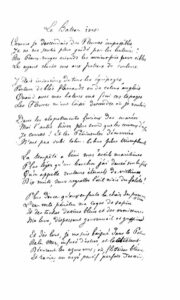 Le Bateau ivre
Comme je descendais des Fleuves impassibles
Je ne me sentis plus guidé par les haleurs :
Des Peaux-rouges criards les avaient pris pour cibles
Les ayant cloués nus aux poteaux de couleurs
J'étais insoucieux de tous les équipages
Porteur de blés flamands ou de cotons anglais
Quand avec mes haleurs ont fini ces tapages
Les Fleuves m'ont laissé descendre où je voulais
Dans les clapotements furieux des marées
Moi l'autre hiver plus sourd que les cerveaux
Je courus ! et les Péninsules démarrées
N'ont pas subi tohu bohus plus triomphants
La tempête a béni mes éveils maritimes
Plus léger qu'un bouchon j'ai dansé sur les flots
Qu'on appelle rouleurs éternels de victimes
Dix nuits, sans regretter l'œil niais des falots
Plus douce qu'aux enfants la chair des pommes
L'eau verte pénétra ma coque de sapin
Et des taches de vins bleus et des vomissures
Me lava, dispersant gouvernail et grappin
Et dès lors, je me suis baigné dans le
De la Mer, infusé d'astres et lactescent
Dévorant les azurs verts, où, flottaison blême
Et ravie, un noyé pensif parfois descend